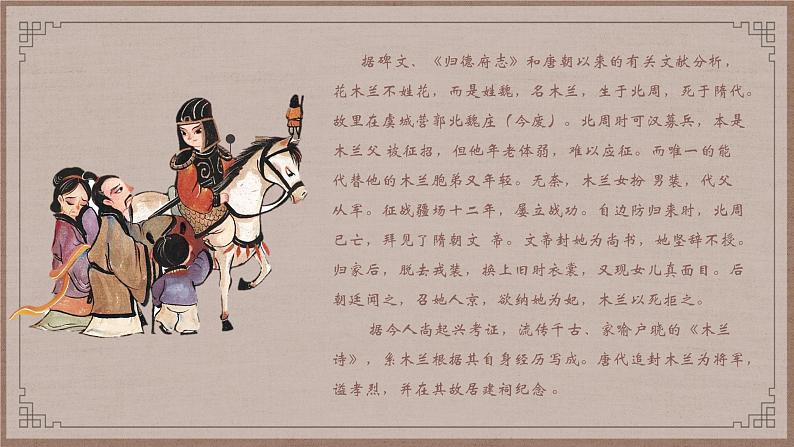 据碑文、《归德府志》和唐朝以来的有关文献分析，
花木兰不姓花，而是姓魏，名木兰，生于北周，死于隋代。
故里在虞城营郭北魏庄（今废）。北周时可汉募兵，本是
木兰父 被征招，但他年老体弱，难以应征。而唯一的能
代替他的木兰胞弟又年轻。无奈，木兰女扮 男装，代父
从军。征战疆场十二年，屡立战功。自边防归来时，北周
已亡，拜见了隋朝文 帝。文帝封她为尚书，她坚辞不授。
归家后，脱去戎装，换上旧时衣裳，又现女儿真面目。后
朝廷闻之，召她人京，欲纳她为妃，木兰以死拒之。
据今人尚起兴考证，流传千古、家喻户晓的《木兰
诗》，系木兰根据其自身经历写成。唐代追封木兰为将军，
谥孝烈，并在其故居建祠纪念 。